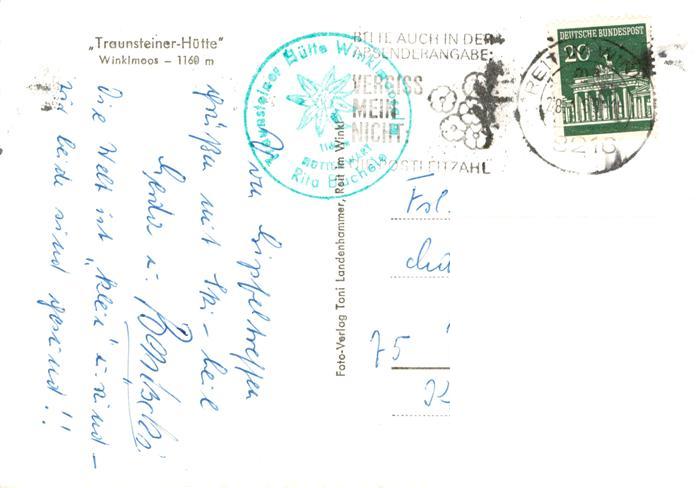 „Traunsteiner-Hütte“
Winklmoos – 1160 m
Traunsteiner Hütte Winklmoos
1160
HÜTTENWART
Rita Büchele
BITTE AUCH IN DER
ABSENDERANGABE:
VERGISS
MEIN
NICHT
POSTLEITZAHL
DEUTSCHE BUNDESPOST
20
REIT IM WINKL
8216
Vom Gipfeltreffen
grüßen mit Ski-heil
Gerda u.
Die Welt ist „klein“ u. rund –
wir beide sind gesund!!
Foto-Verlag Toni Landenhammer, Reit im Winkl
Frl.
75